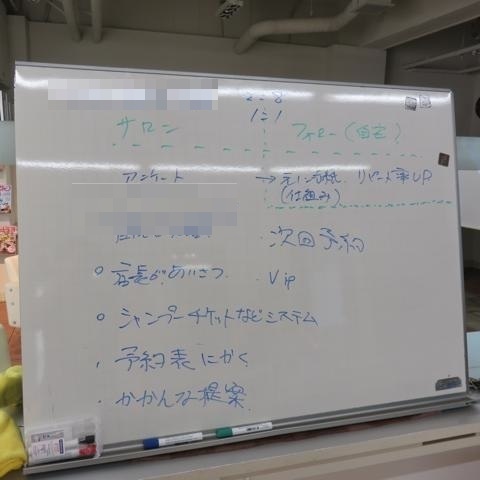 2:8
1:1
サロン
フォロー(自宅)
アンケート → 元ノ方程 リピート率UP
(仕組み)
次回予約
○ 店長があいさつ
・Vip
○ シャンプーチケットなどシステム
・予約表にかく
・かかんな提案